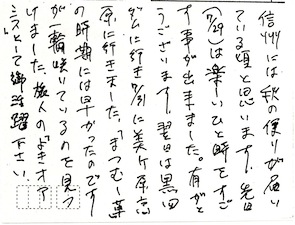 信州には秋の便りが届い
ている頃と思います。先日
(7/29)は楽しいひと時をすご
す事が出来ました。有がと
うございます。翌日は黒四
ダムに行き7/31に美ヶ原高
原に行きました。「まつむし草
の時期には早かったのです
が一輪咲いているのを見つ
けました。旅人の「よきオア
シス」として御活躍下さい。